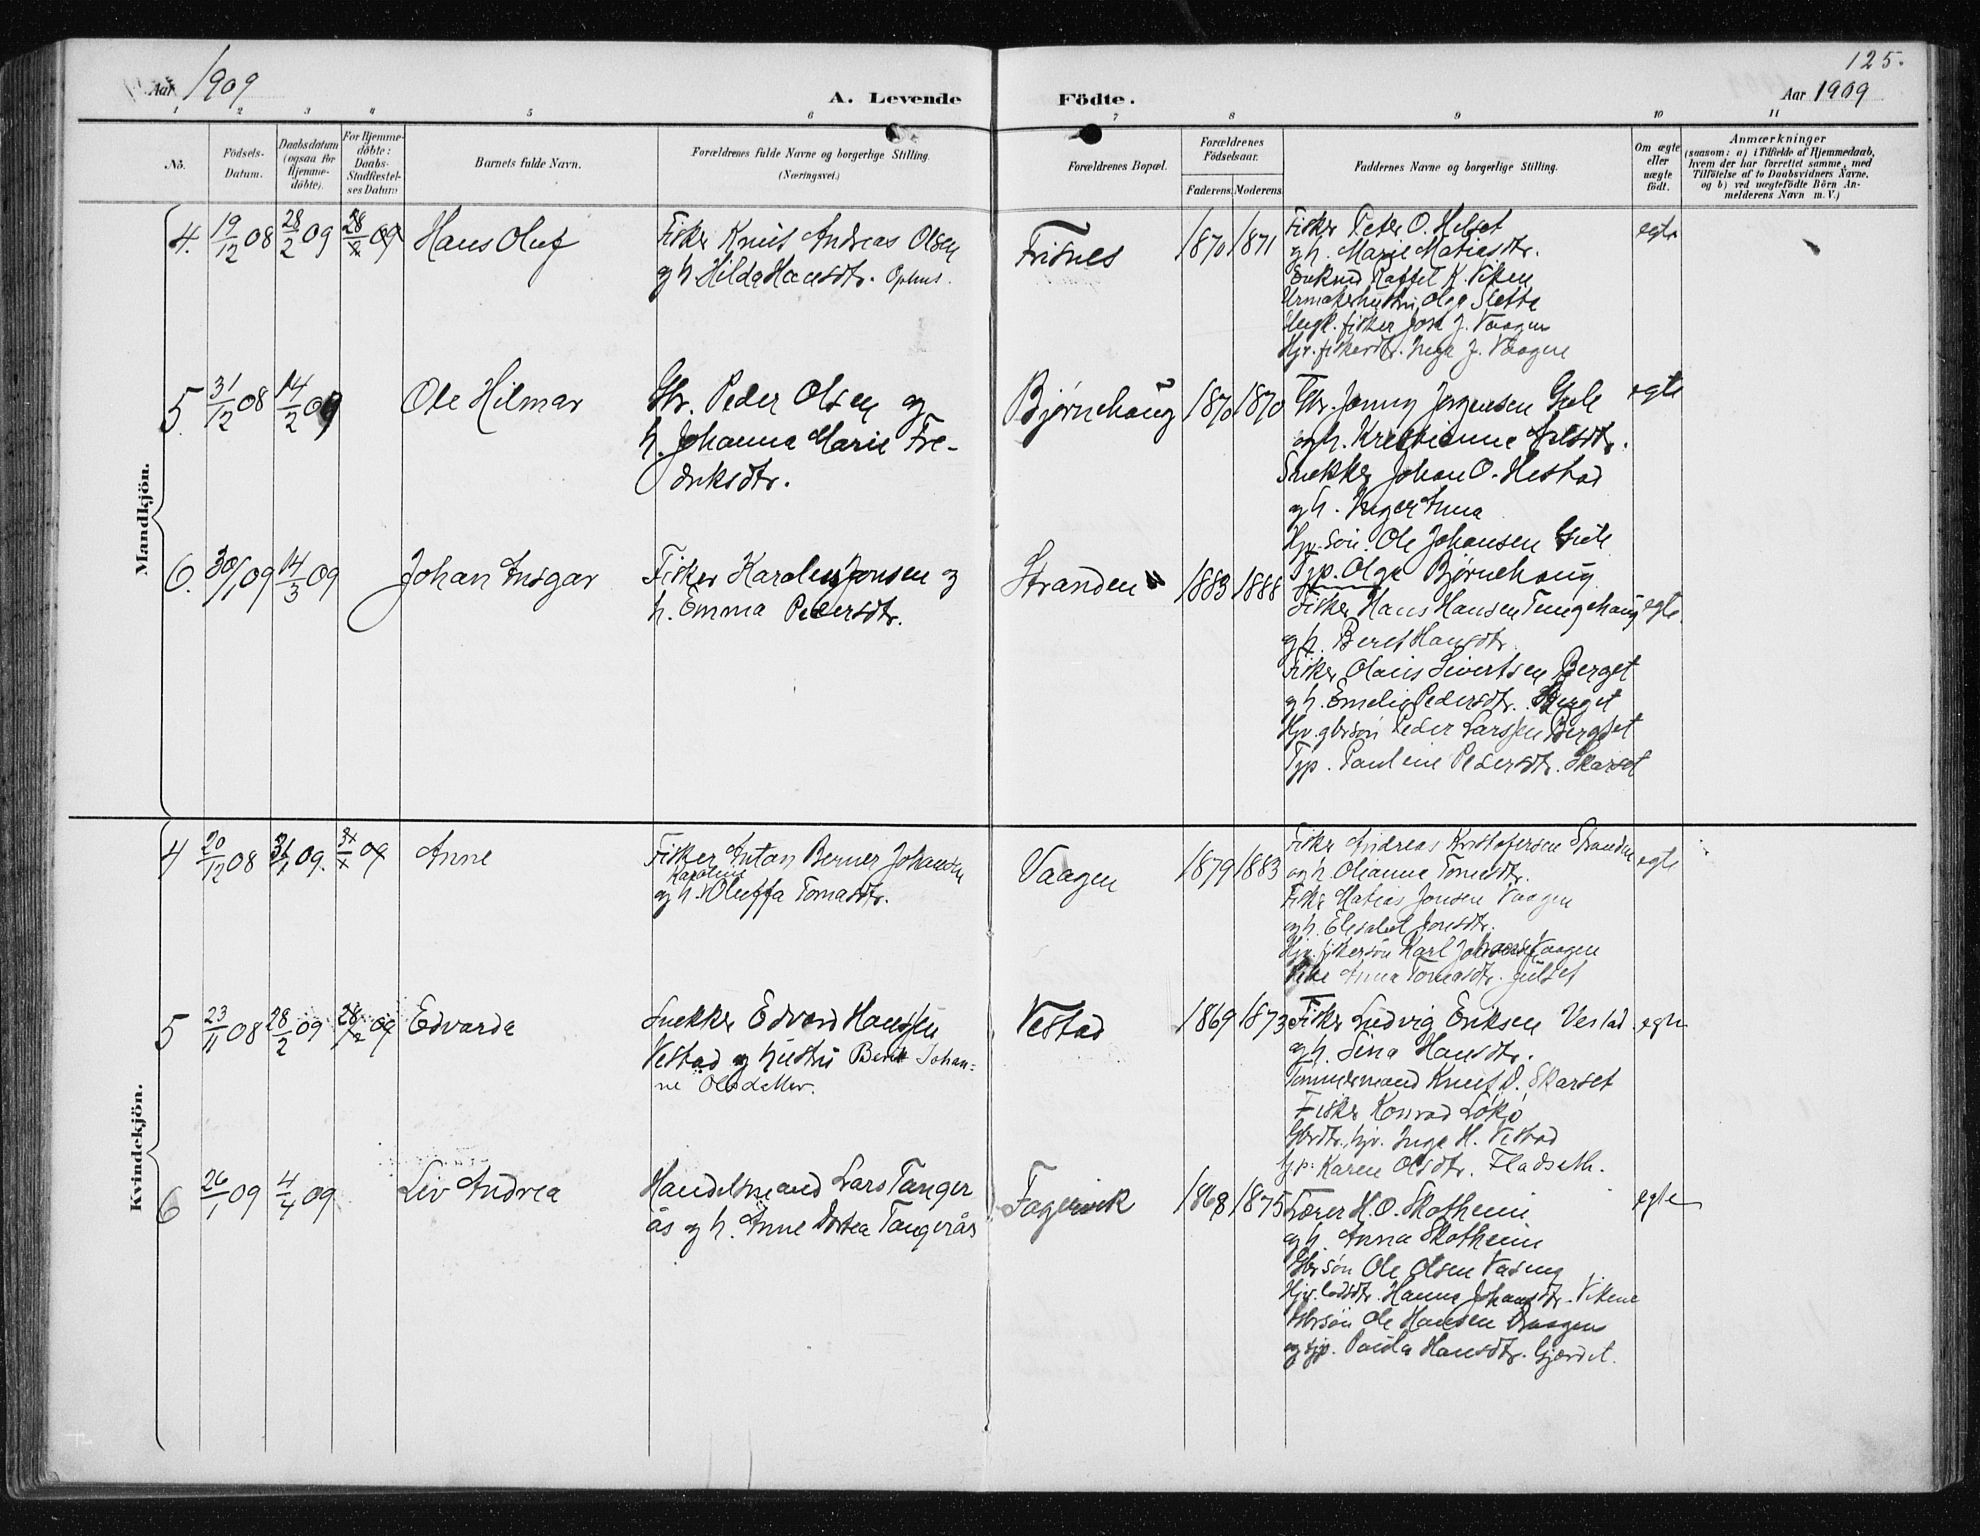 125.
Aar 1909
A. Levende
Födte.
Aar 1909
1 2 3 4 5 6 7 8 9 10 11
Nö.
Födsels-
Datum.
Daabsdatum
(ogsaa for
Hjemme-
döbte).
For Hjemme-
döbte:
Daabs-
Stadfæstel-
ses Datum
Barnets fulde Navn.
Forældrenes fulde Navne og borgerlige Stilling.
(Næringsvei.)
Forældrenes Bopæl.
Forældrenes
Födselsaar.
Faderens. Moderens.
Faddernes Navne og borgerlige Stilling.
Om ægte
eller
uægte
födt.
Anmærkninger
(saasom: a) i Tilfælde af Hjemmedaab,
hvem der har forrettet samme, med
Tilföielse af to Daabsvidners Navne.
og b) ved uægtefödte Börn An-
melderens Navn m. V.)
Mandkjön.
4. 19/12 08 28/2 09 Hans Oluf
Fisker Knut Andreas Olsen
og h. Hilda Hansdtr. Ophus.
Frisnes
1870 1871
Fisker Peter O. Helset
og h. Marie Matiasdtr.
K. Viken
Olga Sletta
fisker J. Vaagen
Inga J. Vaagen
egte
5. 31/12 08 14/2 09 Ole Hilmar
Gbr. Peder Olsen og
h. Johanna Marie Fre-
driksdtr.
Bjørnehaug
1870 1870
Gbr. Jonny Jørgensen
og h.
Snekker Johan O. Hestad
og h. Inger Anna
Hjv. søn. Ole Johansen
Tjp. Olga Bjørnehaug
egte
6. 30/1 09 14/3 09 Johan Ansgar
Fisker Karolus Jonsen og
h. Emma Pedersdtr.
Stranden
1883 1888
Fisker Hans Hansen Tungehaug
og h. Beret Hansdtr.
Fisker Olaus Sivertsen Berget
og h. Emelie Pedersdtr. Berget
Hjv. gbrsøn Peder Larssen Bergset
Tjp. Pauline Pedersdtr. Skarset
egte
Kvindekjön.
4 20/12 08 31/1 09. Anne
Fisker Antan Berner Johansen
Karoline
og h. Oluffa Tomasdtr.
Vaagen
1879 1883
Fisker Andreas Kristofersen Stranden
og h. Olianna Tomasdtr.
Fisker Matias Jonsen Vaagen
og h. Elisabet Jonsdtr.
Hjv. fiskersøn Karl Johans. Vaagen
Pike Anna Tomasdtr. Julset
egte
5 23/11 08 28/2 09 28/2 09 Edvarda
Snekker Edvard Hanssen
Vestad og hustru Berit Johan-
ne Olsdatter.
Vestad
1869 1873
Fisker Ludvig Eriksen Vestad
og h. Sina Hansdtr.
Tømmermand Knut O. Skarset
Fisker Konrad Løkø
Gbrdtr., hjv. Inga H. Vestad
tjp. Karen Olsdtr. Fladseth.
egte
6 26/1 09 4/4 09 Liv Andrea
Handelsmand Lars Tanger
ås og h. Anne Dortea Tangerås
Fagervik
1868 1875
Lærer H. O. Skotheim
og h. Anna Skotheim
Gbrsøn Ole Olsen Vaseng
Hjv. lodsdtr. Hanna Johansdtr. Vikene
Gbrsøn Ole Hansen Vaagen
og tjp. Paula Hansdtr. Gjærdet.
egte